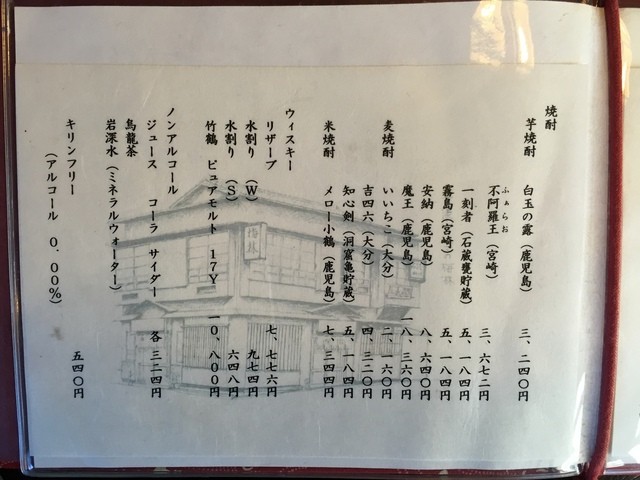 焼酎
芋焼酎　白玉の露（鹿児島）　三、二四〇円
不阿羅王（宮崎）　三、六七二円
ふぁらお
一刻者（石蔵甕貯蔵）　五、一八四円
霧島（宮崎）　五、一八四円
安納（鹿児島）　八、六四〇円
魔王（鹿児島）　一八、三六〇円
麦焼酎　いいちこ（大分）　二、一六〇円
吉四六（大分）　四、三二〇円
知心剣（洞窟亀貯蔵）　五、一八四円
米焼酎　メロー小鶴（鹿児島）　七、三四四円
ウィスキー
リザーブ　七、七七六円
水割り（W）　九七四円
水割り（S）　六四八円
竹鶴　ピュアモルト　17Y　一〇、八〇〇円
ノンアルコール
ジュース　コーラ　サイダー　各三二四円
烏龍茶
岩深水（ミネラルウォーター）
キリンフリー　五四〇円
（アルコール　0．00％）